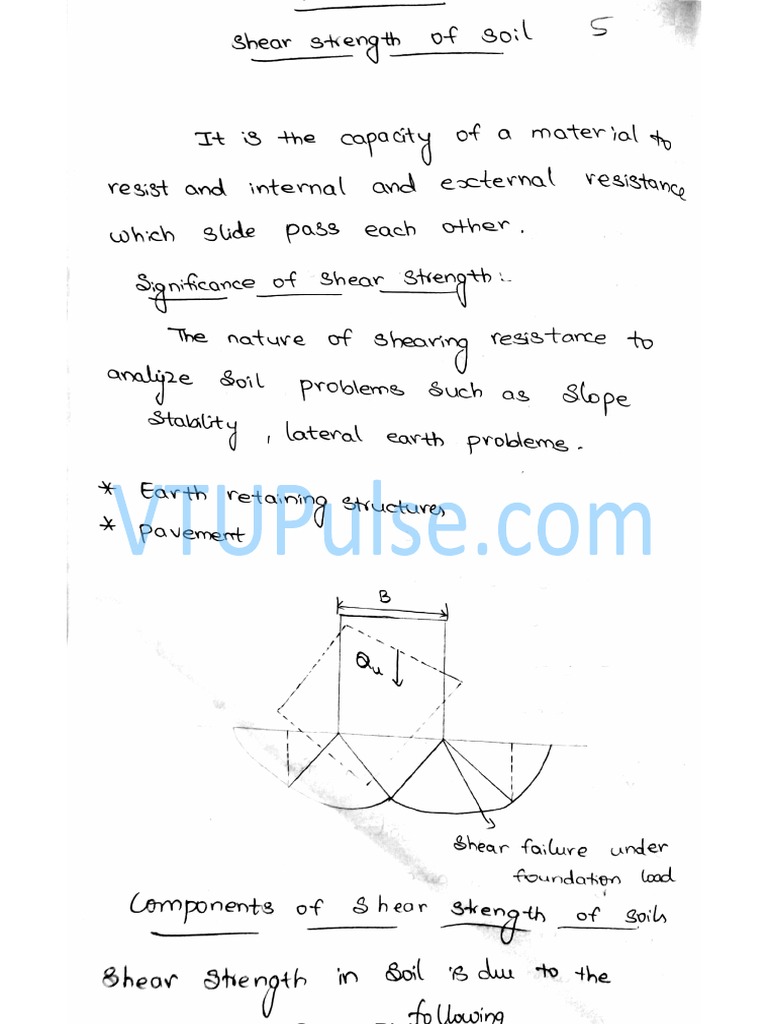 Shear strength of soil 5
It is the capacity of a material to
resist and internal and external resistance
which slide pass each other.
Significance of shear strength:-
The nature of shearing resistance to
analyze soil problems such as slope
stability, lateral earth problems.
* Earth retaining structures
* pavement
VTUPulse.com
B
Qu
Shear failure under
foundation load
Components of shear strength of soils
Shear strength in soil is due to the
following